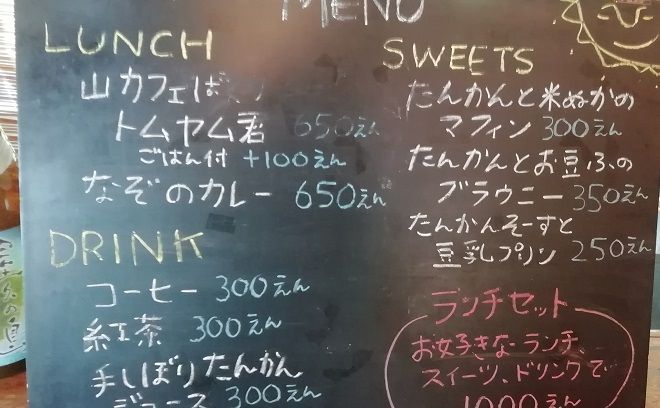 MENU
LUNCH
山カフェば
トムヤム君 650えん
ごはん付 +100えん
なぞのカレー 650えん
DRINK
コーヒー 300えん
紅茶 300えん
手しぼりたんかん
ジュース 300えん
SWEETS
たんかんと米ぬかの
マフィン 300えん
たんかんとお豆ふの
ブラウニー 350えん
たんかんそーすと
豆乳プリン 250えん
ランチセット
お好きなランチ、
スイーツ、ドリンクで
1000えん